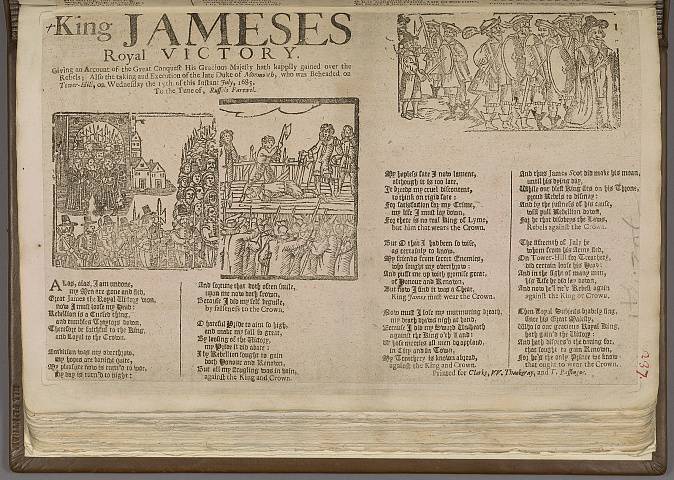 King JAMESES
Royal VICTORY.
Giving an Account of the Great Conquest His Gracious Majesty hath happily gained over the
Rebels; Also the taking and Execution of the late Duke of Monmouth, who was Beheaded on
Tower-Hill, on Wednesday the 15th of this Instant July, 1685.
To the Tune of, Russels Farewel.
ALas, alas, I am undone,
my Men are gone and fled,
Great James the Royal Victory won,
now I must loose my Head:
Rebellion is a Cursed thing,
and tumbles Traytors down,
Therefore be faithful to the King,
and Loyal to the Crown.
Ambition was my overthrow,
my hopes are vanisht quite,
My pleasure now is turn'd to woe,
my day is turn'd to night:
And fortune that doth often smile,
upon me now doth frown,
Because I did my self beguile,
by falseness to the Crown.
O hateful Pride to aim so high,
and make my fall so great,
By loosing of the Victory,
my Pride it did abate:
I by Rebellion sought to gain
both Honour and Renown,
But all my strugling was in vain,
against the King and Crown.
My hopeless fate I now lament,
although it is too late,
It breeds my cruel discontent,
to think on rigid fate:
For satisfaction for my Crime,
my life I must lay down,
For there is no real King of Lyme,
but him that wears the Crown.
But O that I had been so wise,
as certainly to know,
My friends from secret Enemies,
who sought my overthrow:
And puft me up with promise great,
of Honour and Renown,
But now I find it was a Cheat,
King James must wear the Crown.
Now must I lose my murmuring breath,
my death draws nigh at hand,
Because I did my Sword Unsheath
against the King o'th Land:
Whose mercies all men do applaud,
in City and in Town,
My Treachery is known abroad,
against the King and Crown.
And thus James Scot did make his moan,
until his dying day,
While our blest King sits on his Throne,
proud Rebels to dismay:
And by the justness of his cause,
will pull Rebellion down,
For he that disobeys the Laws,
Rebels against the Crown.
The fifteenth of July he
whom from his Arms fled,
On Tower-Hill for Treachery,
did certain loose his Head:
And in the sight of many men,
his Life he did lay down,
And now he'l ne'r Rebel again
against the King or Crown.
Then Loyal Subjects bravely sing,
for his Great Majesty,
Who is our gracious Royal King,
hath gain'd the Victory:
And hath destroy'd the daring foe,
that sought to gain Renown,
For he's the only Prince we know
that ought to wear the Crown.
Printed for Clarke, W. Thackeray, and T. Passinger.
237.